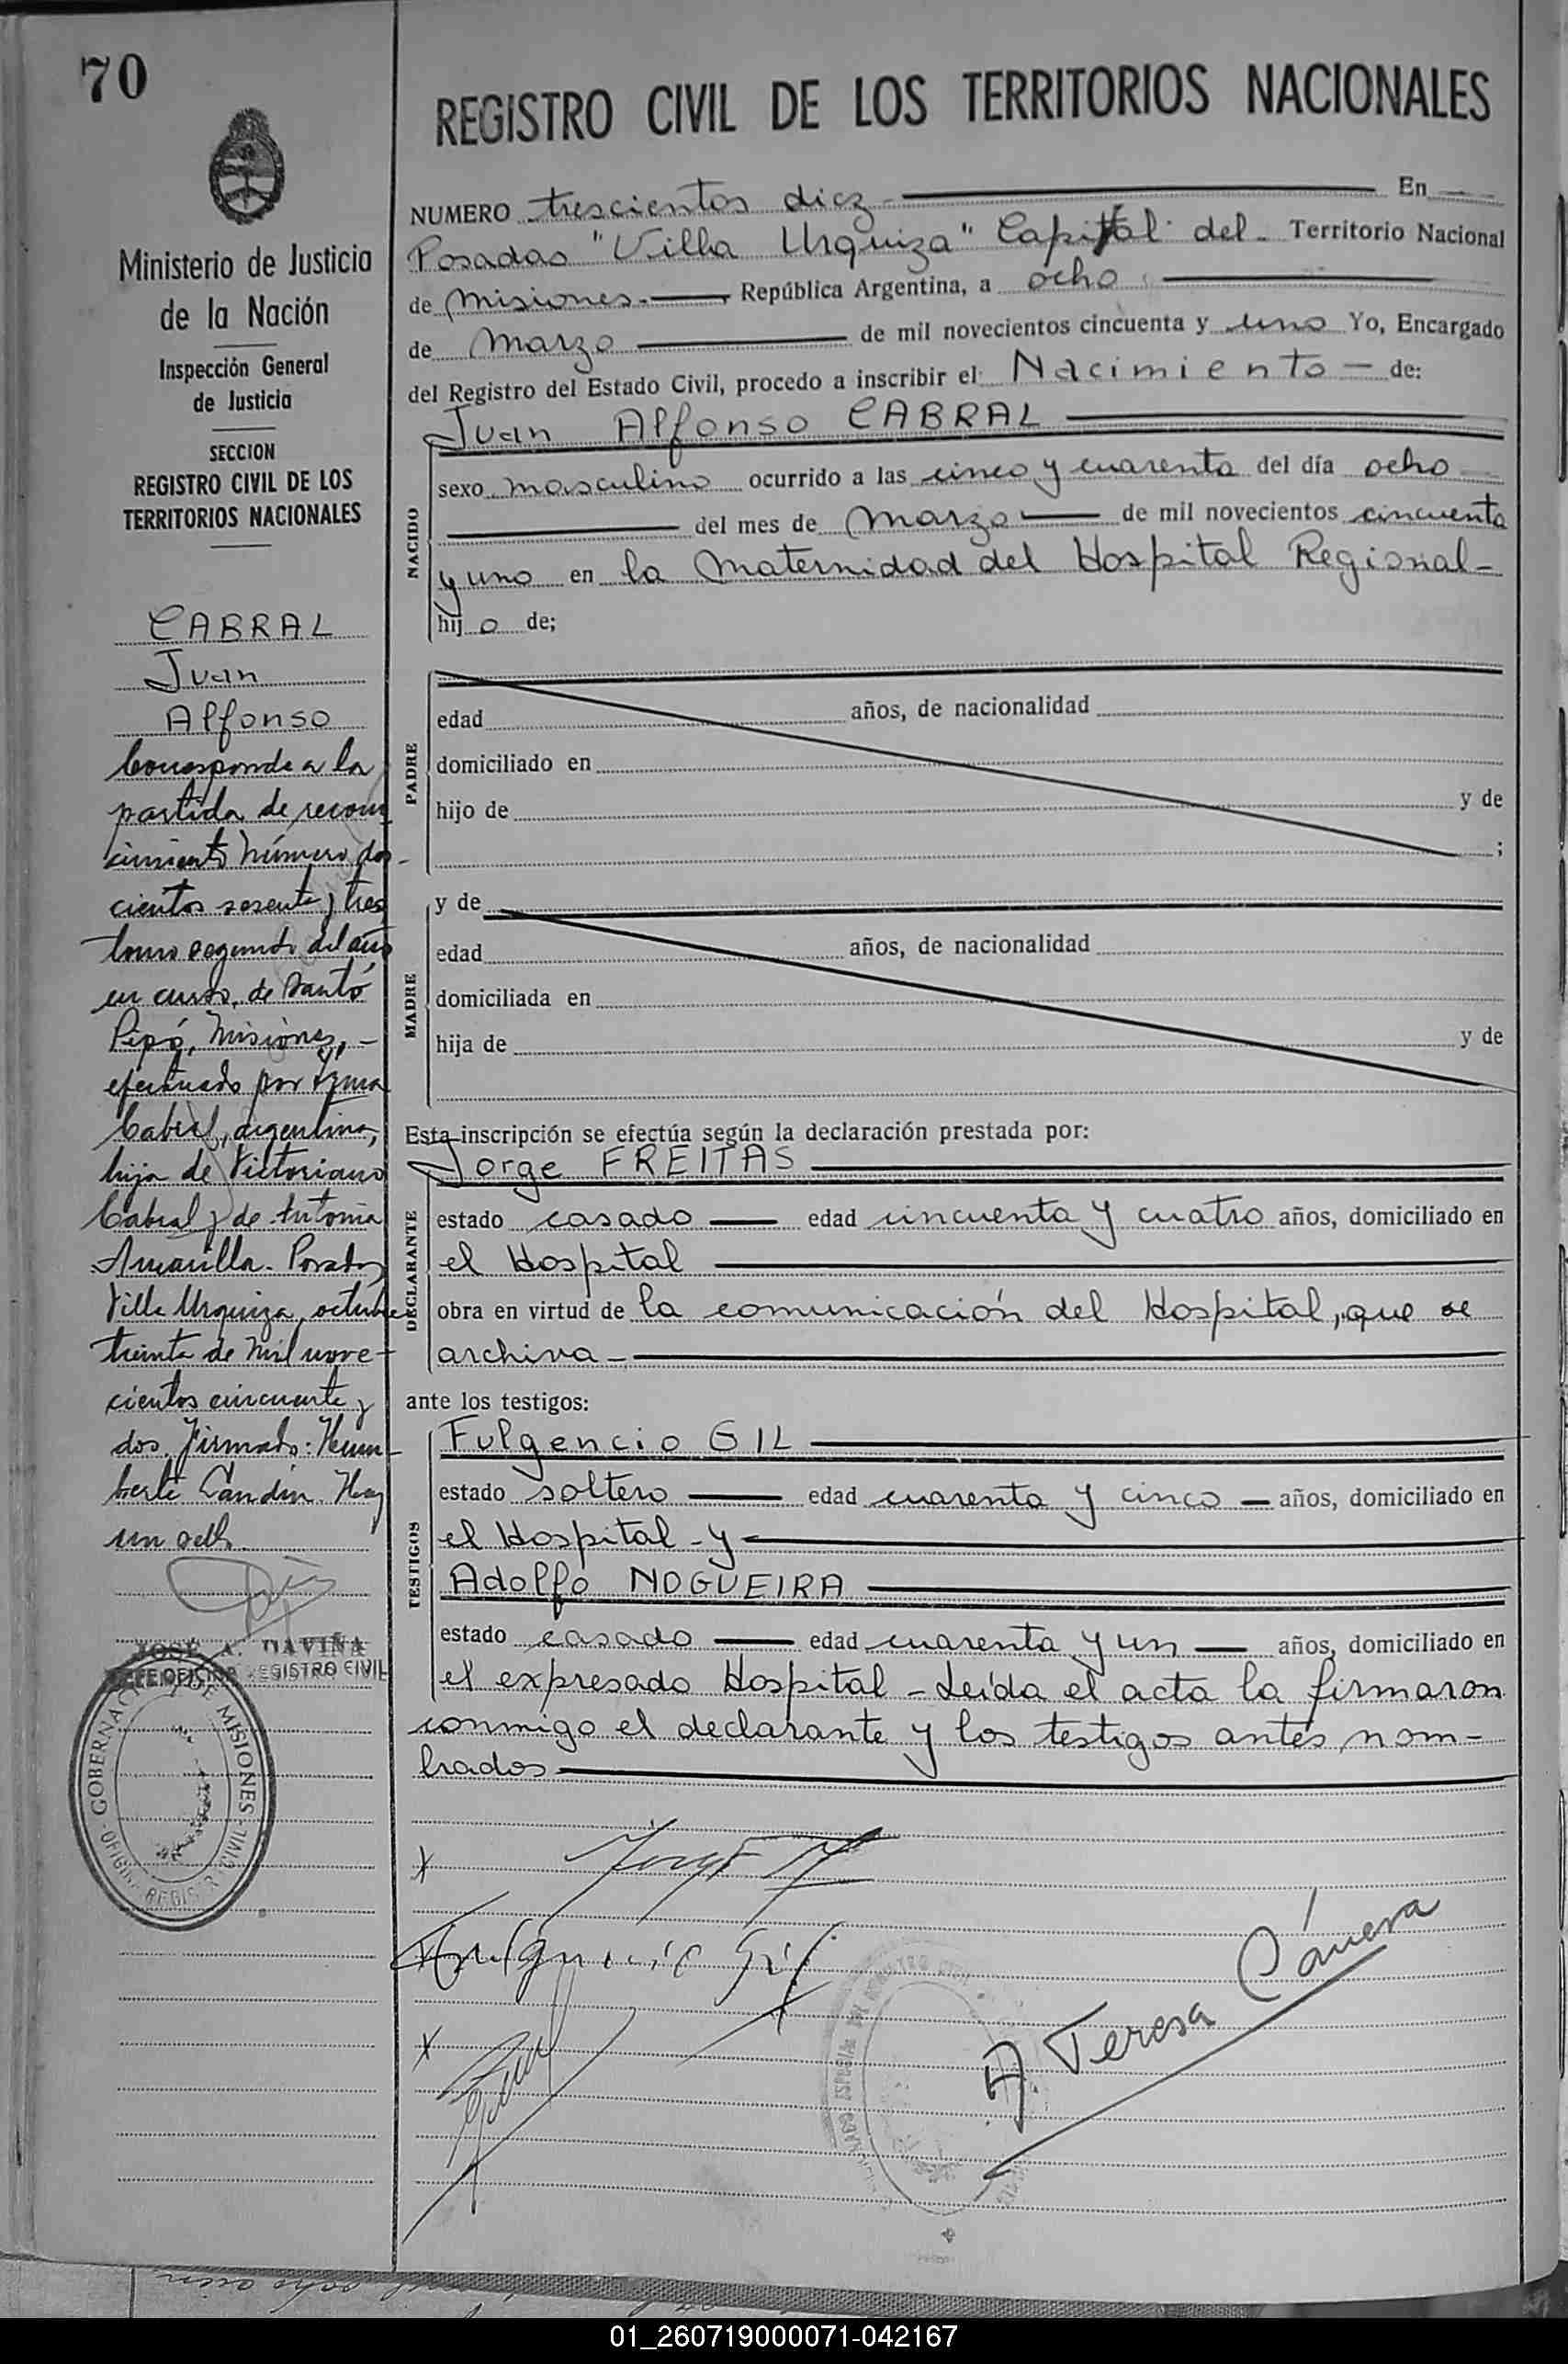 70
REGISTRO CIVIL DE LOS TERRITORIOS NACIONALES
Ministerio de Justicia
de la Nación
Inspección General
de Justicia
SECCION
REGISTRO CIVIL DE LOS
TERRITORIOS NACIONALES
CABRAL
Juan
Alfonso
Corresponde a la
partida de recono
cimiento número dos-
cientos sesenta y tres
tomo segundo del año
en curso, de Santo
Pipó, Misiones, -
efectuado por
Cabral, argentina,
hija de Victoriano
Cabral y de Antonia
Amarilla. Posadas
Villa Urquiza, octubre
treinta de mil nove-
cientos cincuenta y
dos. Firmado: Hum-
berto Landin. Hay
un sello.
JOSE A. DAVIÑA
JEFE OFICINA REGISTRO CIVIL
GOBERNACION DE MISIONES
OFICINA REGISTRO CIVIL
NUMERO trescientos diez En
Posadas "Villa Urquiza" Capital del Territorio Nacional
de Misiones.- República Argentina, a ocho
de Marzo de mil novecientos cincuenta y uno Yo, Encargado
del Registro del Estado Civil, procedo a inscribir el Nacimiento - de:
Juan Alfonso CABRAL
NACIDO
sexo masculino ocurrido a las cinco y cuarenta del día ocho
del mes de Marzo de mil novecientos cincuenta
y uno en la Maternidad del Hospital Regional-
hijo de;
PADRE
edad años, de nacionalidad
domiciliado en
hijo de y de
;
MADRE
y de
edad años, de nacionalidad
domiciliada en
hija de y de
Esta inscripción se efectúa según la declaración prestada por:
Jorge FREITAS
DECLARANTE
estado casado edad cincuenta y cuatro años, domiciliado en
el Hospital
obra en virtud de la comunicación del Hospital, que se
archiva-
ante los testigos:
TESTIGOS
Fulgencio GIL
estado soltero edad cuarenta y cinco - años, domiciliado en
el Hospital - y
Adolfo NOGUEIRA
estado casado edad cuarenta y un años, domiciliado en
el expresado Hospital - Leída el acta la firmaron
conmigo el declarante y los testigos antes nom-
brados
x
Fulgencio Gil
x
A. Teresa Cánera
01_260719000071-042167